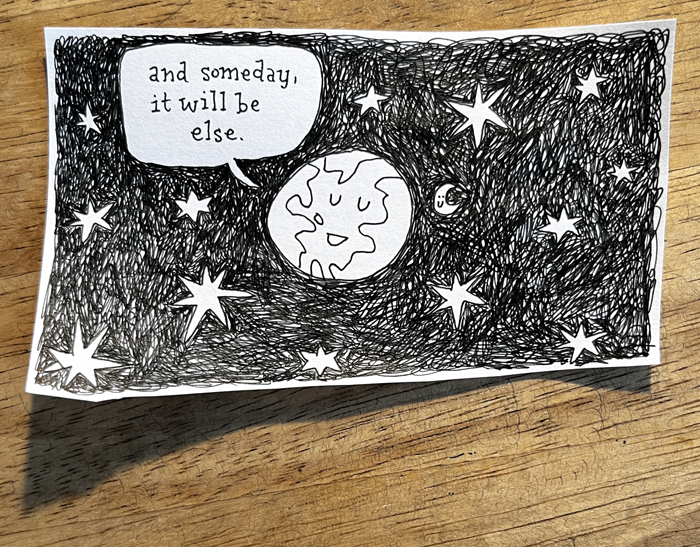 and someday,
it will be
else.